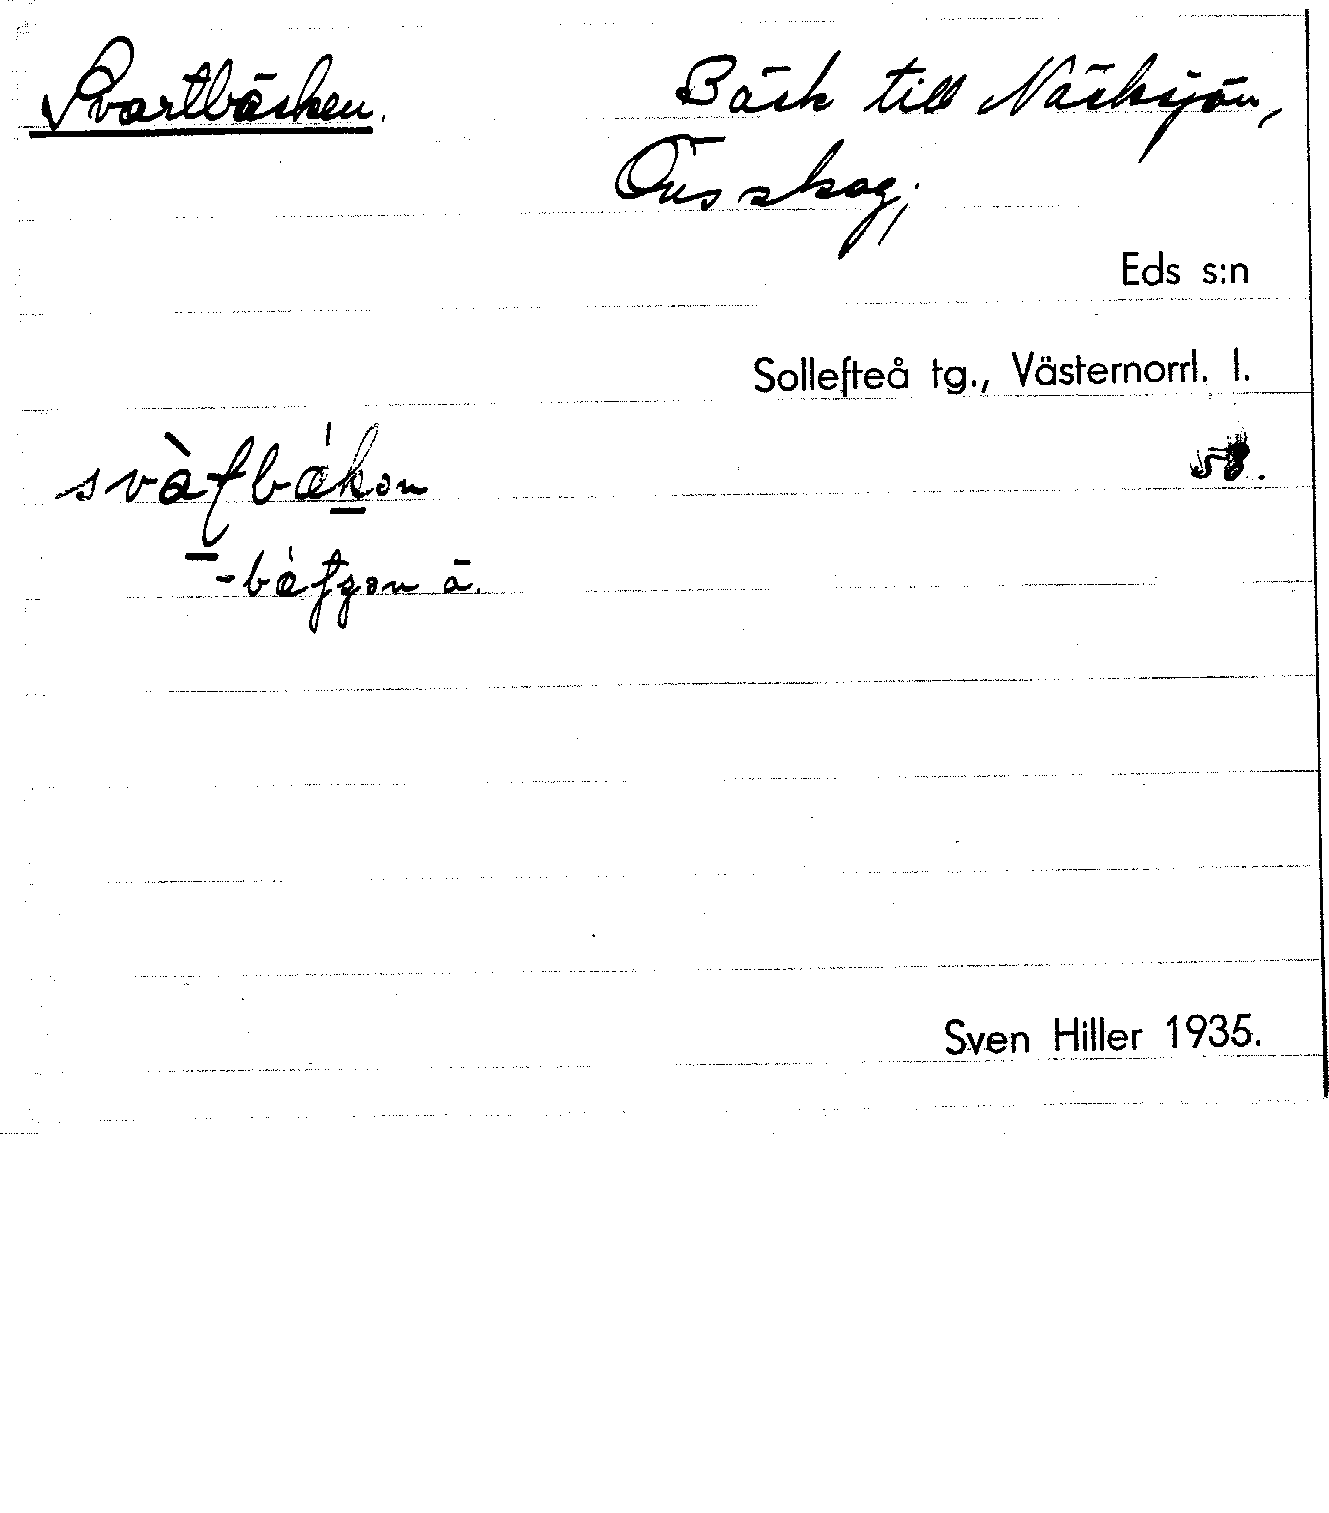 Svartbäcken. Bäck till Näcksjön,
Össkog;
Eds s:n
Sollefteå tg., Västernorrl. l.
58.
Sven Hiller 1935.